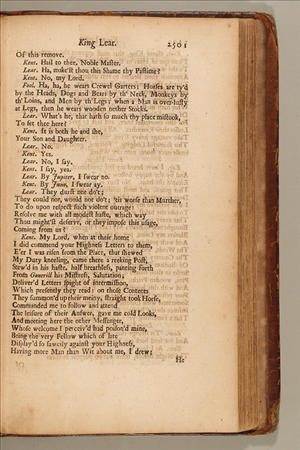 King Lear. 2501
Of this remove.
Kent. Hail to thee, Noble Master.
Lear. Ha, mak'st thou this Shame thy Pastime?
Kent. No, my Lord.
Fool. Ha, ha, he wears Crewel Garters; Horses are ty'd
by the Heads, Dogs and Bears by th' Neck, Monkeys by
th' Loins, and Men by th' Legs; when a Man is over-lusty
at Legs, then he wears wooden nether Stocks.
Lear. What's he, that hath so much thy place mistook,
To set thee here?
Kent. It is both he and she,
Your Son and Daughter.
Lear. No.
Kent. Yes.
Lear. No, I say.
Kent. I say, yea.
Lear. By Jupiter, I swear no.
Kent. By Juno, I swear ay.
Lear. They durst not do't;
They could not, would not do't; 'tis worse than Murther,
To do upon respect such violent outrage:
Resolve me with all modest haste, which way
Thou might'st deserve, or they impose this usage,
Coming from us?
Kent. My Lord, when at their home
I did commend your Highness Letters to them,
E'er I was risen from the Place, that shewed
My Duty kneeling, came there a reeking Post,
Stew'd in his haste, half breathless, panting forth
From Gonerill his Mistress, Salutation;
Deliver'd Letters spight of intermission,
Which presently they read: on those Contents
They summon'd up their meiny, straight took Horse,
Commanded me to follow and attend
The leisure of their Answer, gave me cold Looks,
And meeting here the other Messenger,
Whose welcome I perceiv'd had poison'd mine,
Being the very Fellow which of late
Display'd so sawcily against your Highness,
Having more Man than Wit about me, I drew;
He